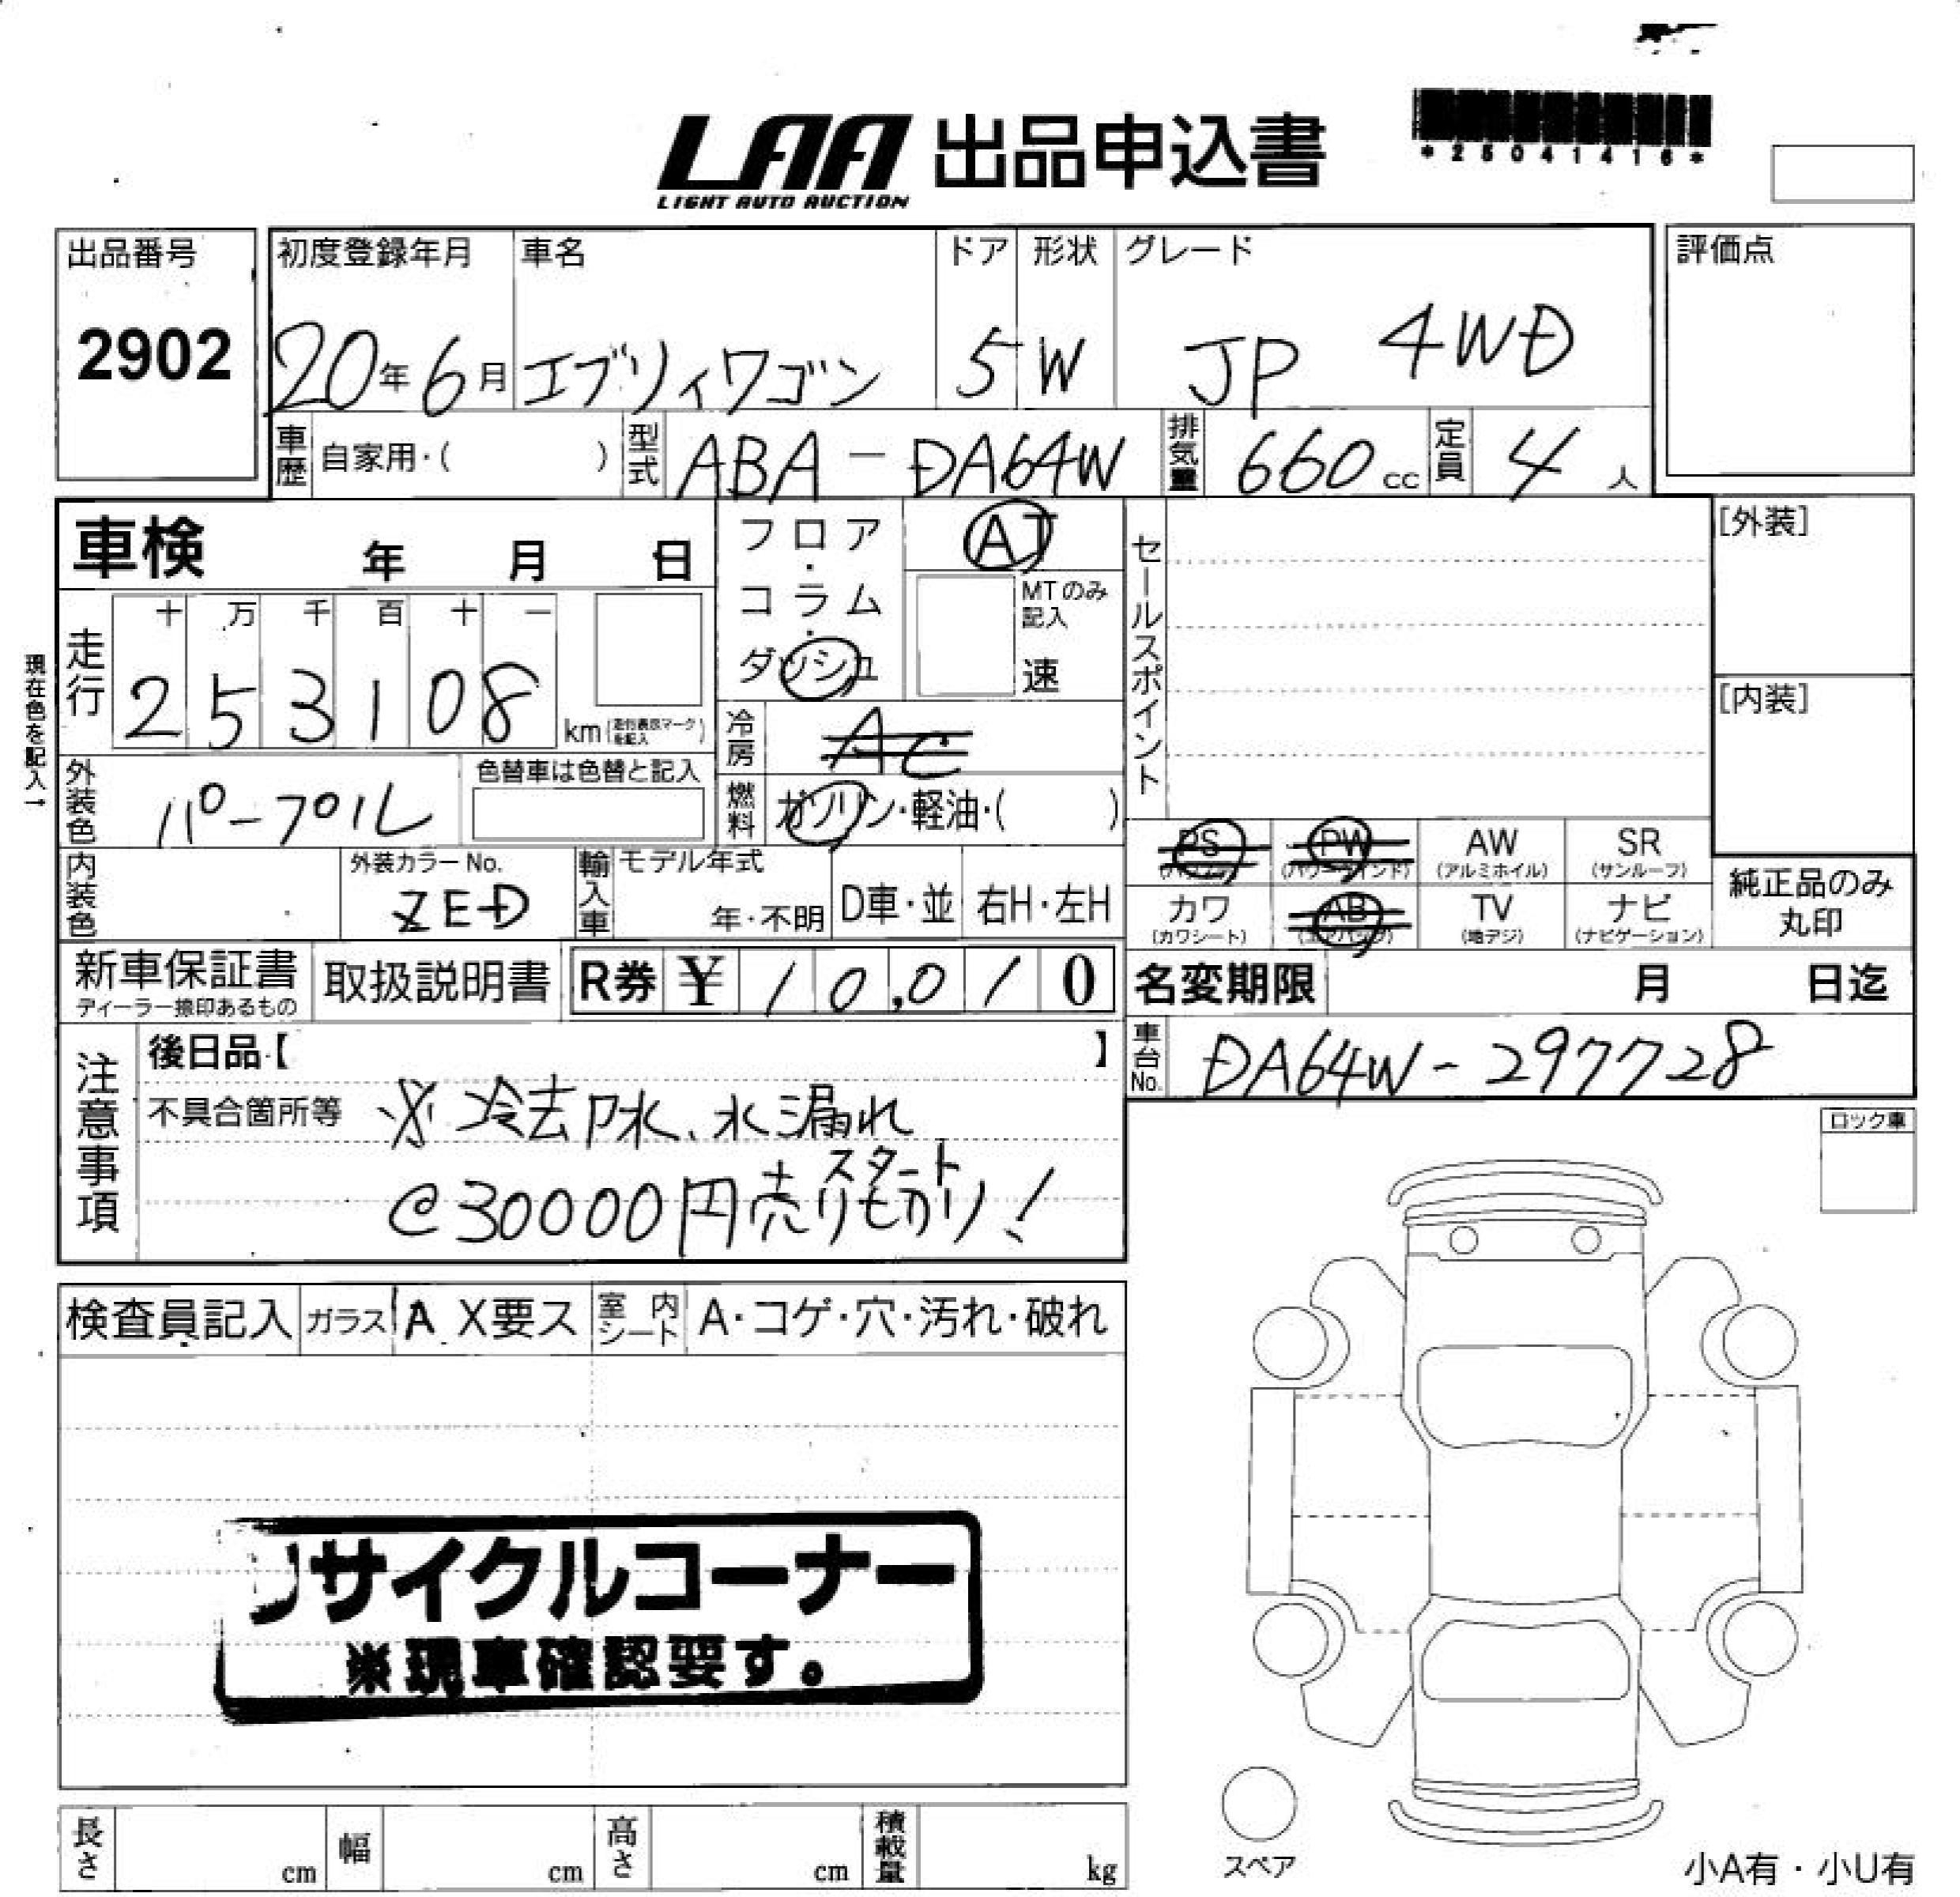 LAA 出品申込書
LIGHT AUTO AUCTION
*25041416*
出品番号 初度登録年月 車名 ドア 形状 グレード 評価点
2902 20年6月 エブリィワゴン 5 W JP 4WD
車歴 自家用・( ) 型式 ABA-DA64W 排気量 660cc 定員 4人
車検 年 月 日
フロア・コラム・ダッシュ
AT
MTのみ記入
速
セールスポイント
[外装]
[内装]
現在色を記入→
走行 十 万 千 百 十 一
253108 km
冷房 AC
外装色 パープル 色替車は色替と記入
燃料 ガソリン・軽油・( )
PS PW AW SR
(パワステ) (パワーウインド) (アルミホイル) (サンルーフ)
カワ AB TV ナビ
(カワシート) (エアバッグ) (地デジ) (ナビゲーション)
純正品のみ
丸印
内装色 外装カラーNo. ZED 輸入車 モデル年式 年・不明 D車・並 右H・左H
新車保証書 取扱説明書 R券 ¥ 10,010
ディーラー捺印あるもの
名変期限 月 日迄
車台No. DA64W-297728
注意事項
後日品【 】
不具合箇所等 ※冷却水、水漏れ
スタート
@30000円売りもかり!
ロック車
検査員記入 ガラス A X要ス 室内シート A・コゲ・穴・汚れ・破れ
リサイクルコーナー
※現車確認要す。
スペア
小A有・小U有
長さ cm 幅 cm 高さ cm 積載量 kg